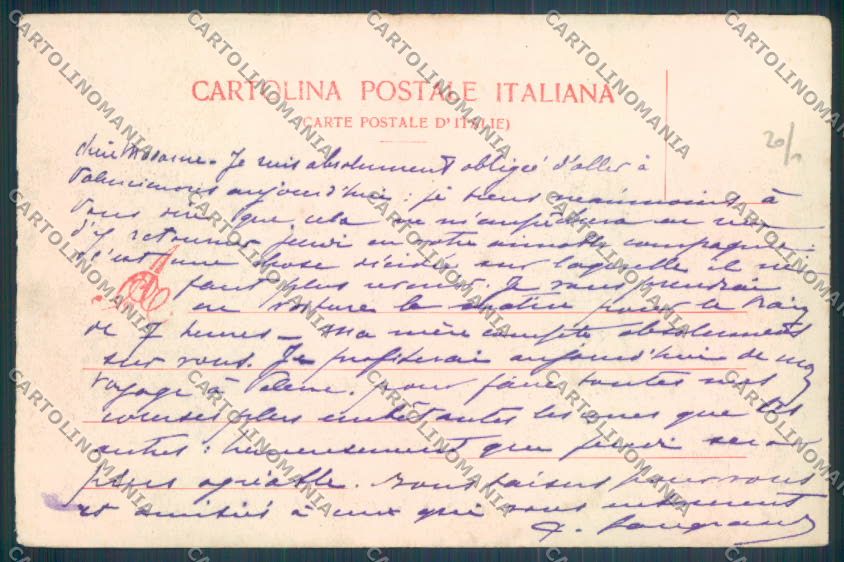 CARTOLINA POSTALE ITALIANA
(CARTE POSTALE D'ITALIE)
20/1
chère Madame. Je suis absolument obligée d'aller à
Valenciennes aujourd'hui : je tiens néanmoins à
vous dire que cela ne m'empêchera en rien
d'y retourner jeudi en votre aimable compagnie :
c'est une chose décidée sur laquelle il ne
faut plus revenir. Je vous prendrai
en voiture le matin pour le train
de 7 heures – Ma mère compte absolument
sur vous. Je profiterai aujourd'hui de mon
voyage à Valenc. pour faire toutes mes
courses plus embêtantes les unes que les
autres : heureusement que jeudi sera
plus agréable. Bons baisers pour vous
et amitiés à ceux qui vous entourent
CARTOLINOMANIA